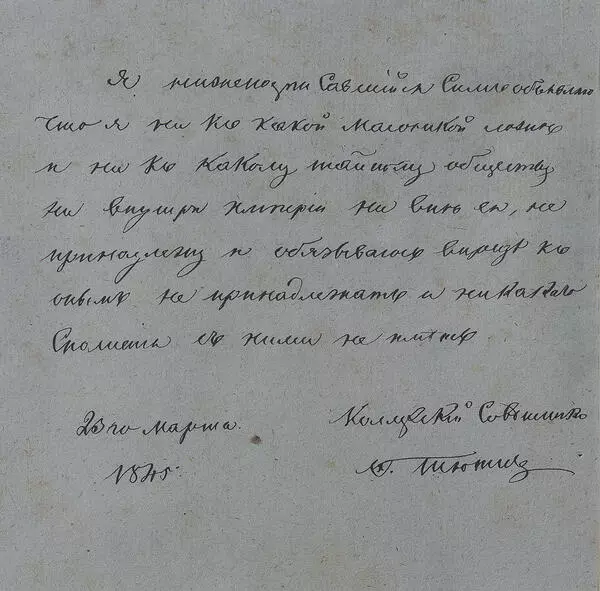 Я нижеподписавшійся симъ объявляю
что я ни къ какой масонской ложѣ
и ни къ какому тайному обществу
ни внутри имперіи ни внѣ ея, не
принадлежу и обязываюсь впредь къ
онымъ не принадлежать и никакого
сношенія съ ними не имѣть
23го марта.
1845.
Коллежскій Совѣтникъ
Ѳ. Тютчевъ